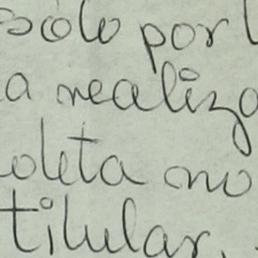 solo por l
a realiza
oleta no
titular.